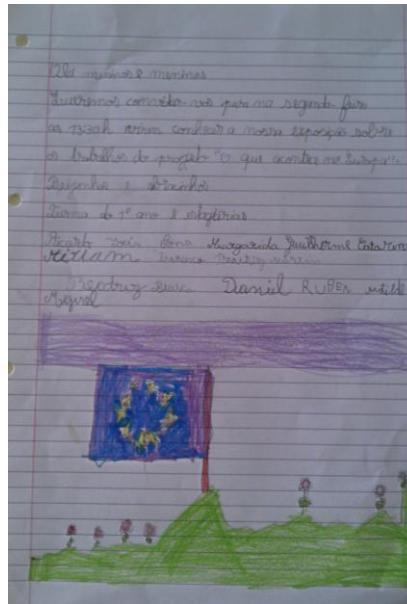 Olá meninos e meninas
Queremos convidar-vos para na segunda feira
as 13:30h virem conhecer a nossa exposição sobre
os trabalhos do projeto "O que acontece na Europa".
Beijinhos e abracinhos
Turma do 1º ano e estagiárias
Ricardo Inês Margarida Guilherme Catarina
MIRIAM Beatriz
Beatriz Daniel RUBEN
Miguel